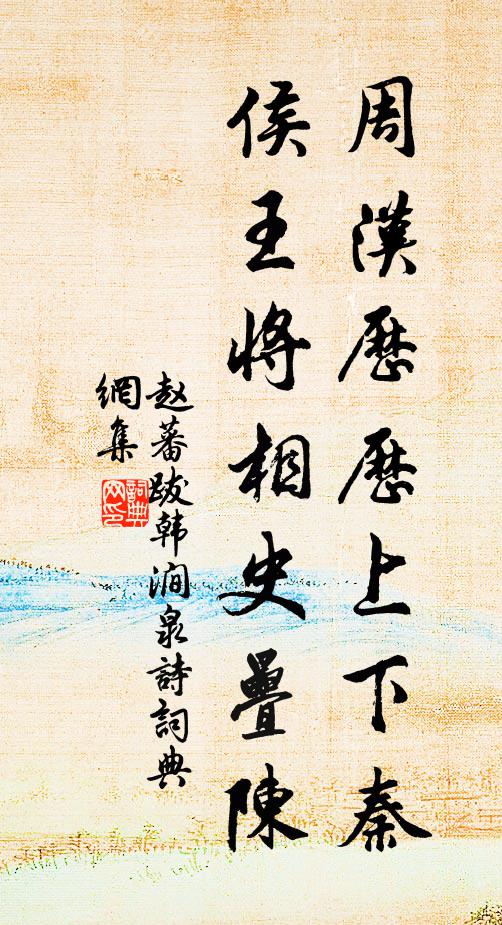 周漢歷歷上下秦
侯王將相史疊陳
赵蕃跋韩澗泉詩詞典
網集
詞典網印